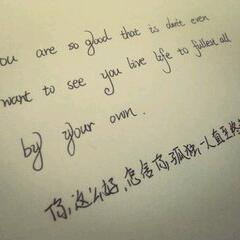 ou are so good that is don't even
want to see you live life to fullest all
by your own.
你,这么好,怎舍你孤独一人直至